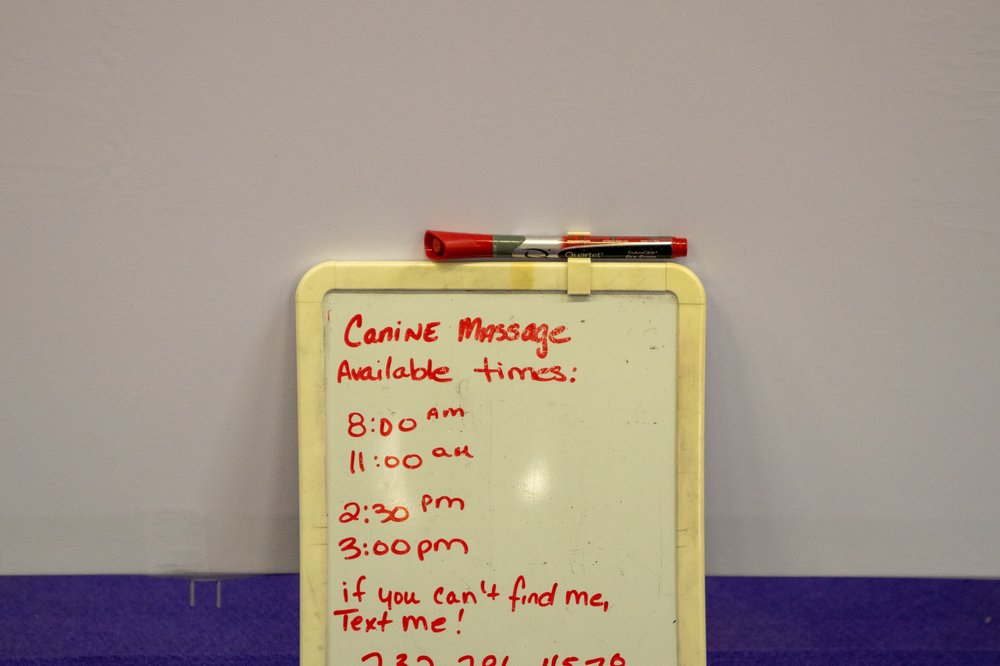 Quartet
Dry Erase
CaniNE Massage
Available times:
8:00 Am
11:00 am
2:30 pm
3:00pm
if you can't find me,
Text me!